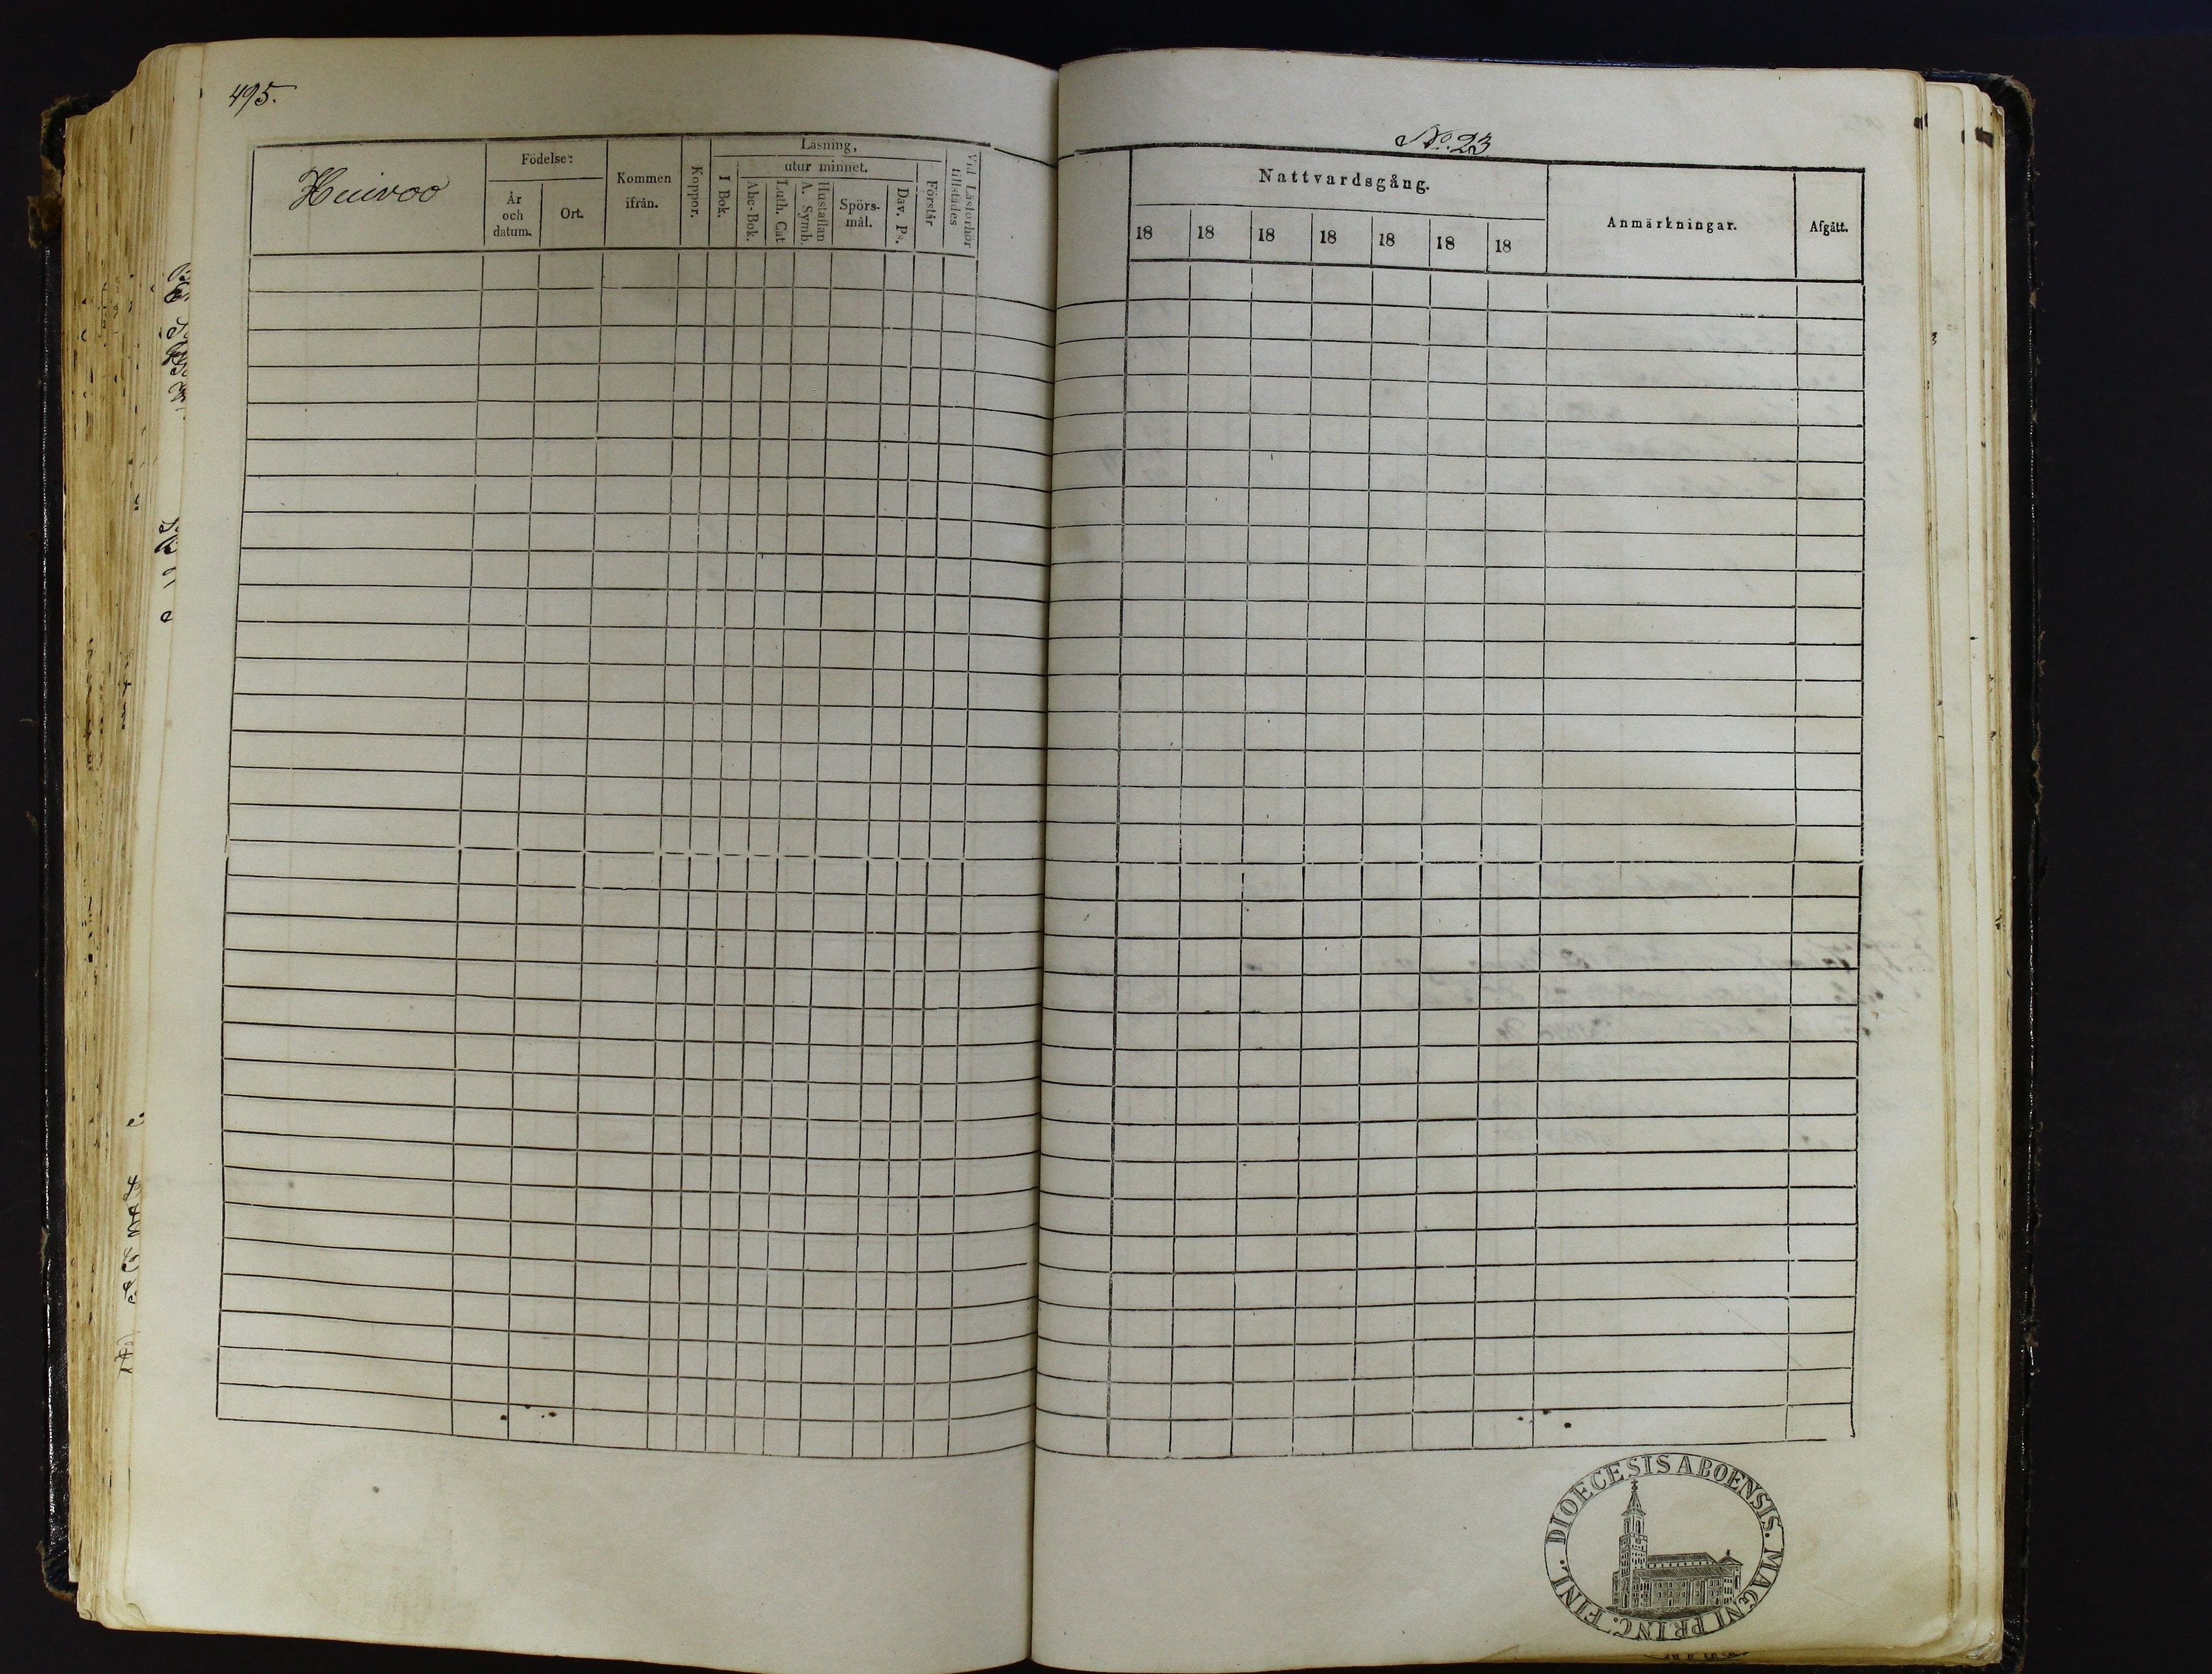 495.
Huivoo
Födelse:
År
och
datum.
Ort.
Kommen
ifrån.
Koppor.
Läsning,
I Bok.
utur minnet.
Abc-Bok.
Luth. Cat
Hustaflan
A. Symb.
Spörs-
mål.
Dav. Ps.
Förstår
Vid Läsförhör
tillstädes
No. 23
Nattvardsgång.
18 18 18 18 18 18 18
Anmärkningar.
Afgått.
DIOECESIS ABOENSIS. MAGNI PRINC. FINL.